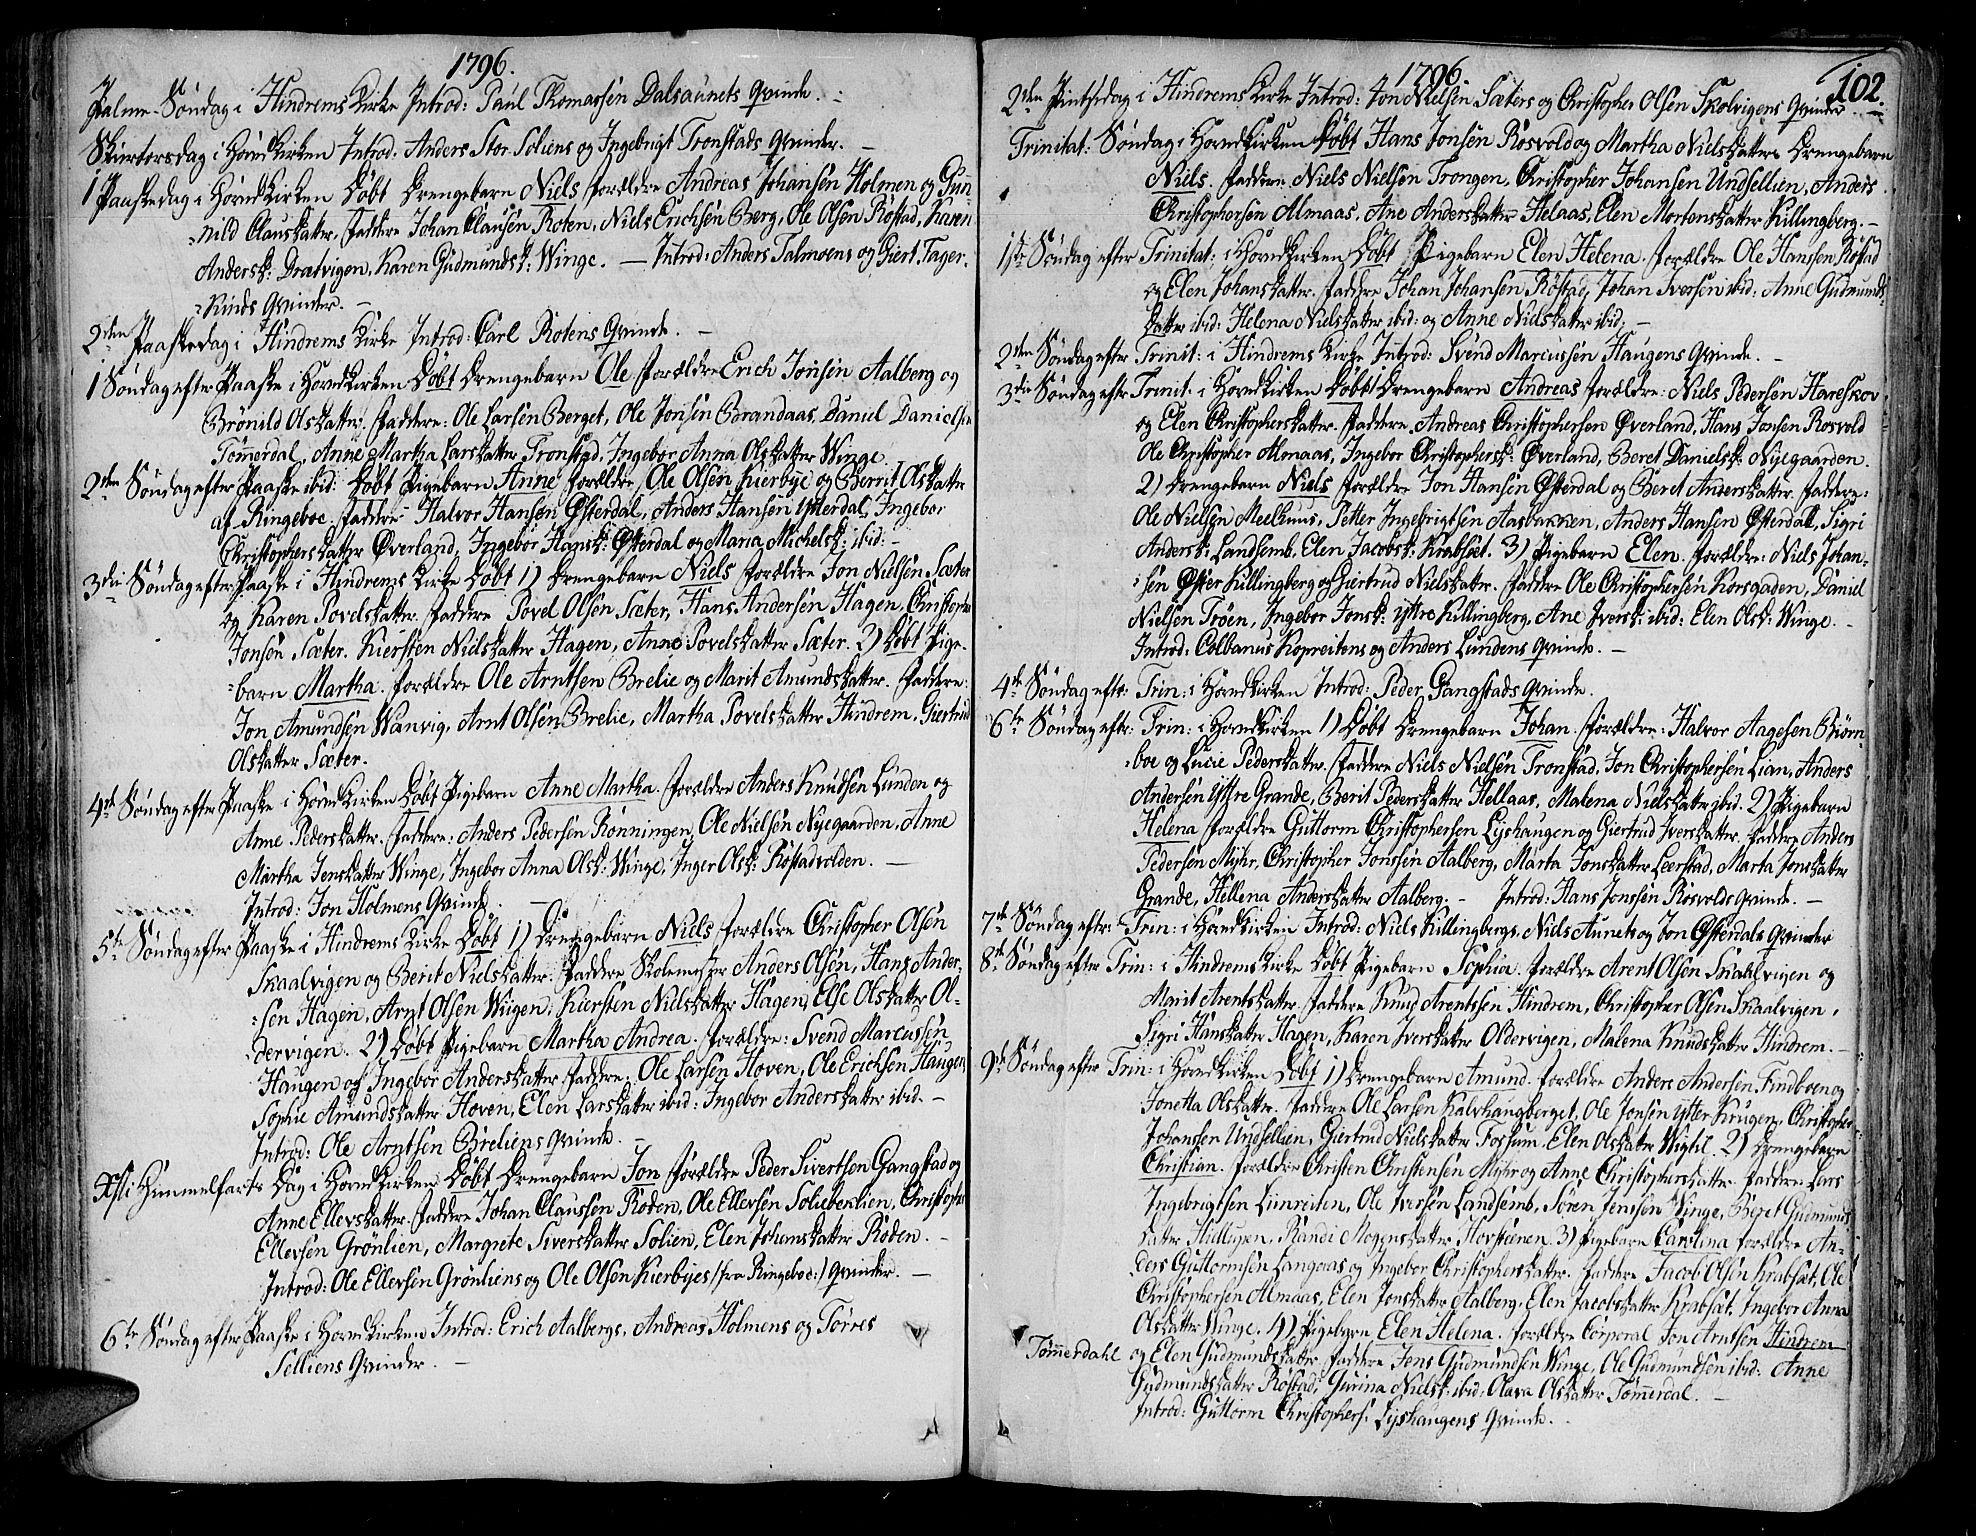 1796.
Palme-Søndag i Hindrems Kirke Introd: Paul Thomassen Dalsaunets Qvinde. –
Skiertorsdag i Hovedkirken Introd: Anders Stor Soliens og Ingebrigt Tronstads Qvinder. –
1 Paaskedag i Hovedkirken Døbt Drengebarn Niels, forældre Andreas Johansen Holmen og Gun-
nild Clausdatter. Faddere Johan Clausen Roten, Niels Erichsen Berg, Ole Olsen Røstad, Karen
Andersd: Drætvigen, Karen Gudmundsd: Winge. – Introd: Anders Talmoens og Giert Fager-
Rinds Qvinder. –
2den Paaskedag i Hindrems Kirke Introd: Carl Rotens Qvinde. –
1 Søndag efter Paaske i Hovedkirken Døbt Drengebarn Ole, forældre Erich Jonsen Aalberg og
Brønild Olsdatter. Faddere: Ole Larsen Berget, Ole Jonsen Brandaas, Daniel Danielsen
Tømmerdal, Anne Martha Larsdatter Tronstad, Ingebor Anna Olsdatter Winge
2den Søndag efter Paaske ibid: Døbt Pigebarn Anne forældre Ole Olsen Kierbye og Berrit Olsdatter
af Ringeboe. Faddere Halvor Hansen Østerdal, Anders Hansen Østerdal, Ingebor
Christophersdatter Øverland, Ingebor Hansd: Østerdal og Maria Michelsd: ibid: –
3die Søndag efter Paaske i Hindrems Kirke Døbt 1) Drengebarn Niels forældre Jon Nielsen Sæter
og Karen Povelsdatter. Faddere Povel Olsen Sæter, Hans Andersen Hagen, Christopher
Jonsen Sæter. Kiersten Nielsdatter Hagen, Anne Povelsdatter Sæter. 2) Døbt Pige-
barn Martha. forældre Ole Arntsen Brelie og Marit Amundsdatter. Faddere:
Jon Amundsen Wanvig, Arnt Olsen Brelie, Martha Povelsdatter Hindrem, Giertrud
Olsdatter Sæter.
4de Søndag efter Paaske i Hovedkirken Døbt Pigebarn Anne Martha. forældre Anders Knudsen Lunden og
Anne Pedersdatter. Faddere: Anders Pedersen Rønningen, Ole Nielsen Nyegaarden, Anne
Martha Jensdatter Winge, Ingebor Anna Olsd: Winge, Inger Olsd: Røstadvolden. –
Introd: Jon Holmens Qvinde. –
5te Søndag efter Paaske i Hindrems Kirke Døbt 1) Drengebarn Niels forældre Christopher Olsen
Skaalvigen og Berit Nielsdatter. Faddere Skolemester Anders Olsen, Hans Ander-
sen Hagen, Arnt Olsen Wiigen, Kiersten Nielsdatter Hagen, Else Olsdatter Ol-
dervigen. 2) Døbt Pigebarn Martha Andrea. forældre: Svend Marcussen
Haugen og Ingebor Andersdatter. Faddere Ole Larsen Hoven, Ole Erichsen Haugen,
Sophie Amundsdatter Hoven, Elen Larsdatter ibid: Ingebor Andersdatter ibid. –
Introd: Ole Arntsen Breliens Qvinde. –
Xsti Himmelfarts Dag i Hovedkirken Døbt Drengebarn Jon forældre Peder Sivertsen Gangstad og
Anne Ellevsdatter. Faddere Johan Claussen Røden, Ole Ellevsen Soliebeklien, Christopher
Ellevsen Grønlien, Margrete Siversdatter Solien, Elen Johansdatter Røden. –
Introd: Ole Ellevsen Grønliens og Ole Olsen Kierbyes /: fra Ringeboe:/ Qvinder. –
6te Søndag efter Paaske i Hovedkirken Introd: Erich Aalbergs, Andreas Holmens og Tørres
Selliens Qvinder. –
1796.
102.
2den Pintsedag i Hindrems Kirke Introd: Jon Nielsen Sæters og Christopher Olsen Skolvigens Qvinder –
Trinitat: Søndag i Hovedkirken Døbt Hans Jonsen Rosvold og Martha Nielsdatters Drengebarn
Niels. Faddere Niels Nielsen Trongen, Christopher Johansen Undsellien, Anders
Christophersen Almaas, Ane Andersdatter Helaas, Elen Mortensdatter Killingberg. –
1ste Søndag efter Trinitat: i Hovedkirken Døbt Pigebarn Elen Helena. forældre Ole Hanssen Røstad
og Elen Johansdatter. Faddere Johan Johansen Røstad, Johan Iversen ibid: Anne Gudmunds-
datter ibid: Helena Nielsdatter ibid: og Anne Nielsdatter ibid. –
2den Søndag efter Trinit: i Hindrems Kirke Introd: Svend Marcussen Haugens Qvinde. –
3die Søndag efter Trinit: i Hovedkirken Døbt Drengebarn Andreas forældre: Niels Pedersen Hareskov
og Elen Christophersdatter. Faddere Andreas Christophersen Øverland, Hans Jonsen Rosvold
Ole Christopher Almaas, Ingebor Christophersd: Øverland, Beret Danielsd: Nyegaarden.
2) Drengebarn Niels forældre Jon Hansen Østerdal og Beret Andersdatter. Faddere:
Ole Nielsen Meelhuus, Petter Ingebrigtsen Aasbakken, Anders Hansen Østerdall, Sigri
Andersd: Landsemb, Elen Jacobsd: Krabsæt. 3) Pigebarn Elen. forældre: Niels Johan-
sen Øster Killingberg og Giertrud Nielsdatter. Faddere Ole Christophersen Korsgaden, Daniel
Nielsen Trøen, Ingebor Jonsd: yttre Killingberg, Ane Iversd: ibid: Elen Olsd: Winge. –
Introd: Colbanus Kopreitens og Anders Lundens Qvinde. –
4de Søndag eftr: Trin: i Hovedkirken Introd: Peder Gangstads Qvinde.
6te Søndag eftr: Trin: i Hovedkirken 1) Døbt Drengebarn Johan. forældre: Halvor Aagesen Biørn-
boe og Lucie Pedersdatter. Faddere Niels Nielsen Tronstad, Jon Christophersen Lian, Anders
Andersen Yttre Grande, Berit Pedersdatter Hellaas, Malena Nielsdatter ibid. 2) Pigebarn
Helena forældre Guttorm Christophersen Lyshaugen og Giertrud Iversdatter. Faddere Anders
Pedersen Myhr, Christopher Jonssen Aalberg, Marta Jonsdatter Leerstad, Marta Jonsdatter
Grande, Hellena Andersdatter Aalberg. – Introd: Hans Jonssen Rosvolds Qvinde. –
7de Søndag efter Trin: i Hovedkirken Introd: Niels Killingbergs, Niels Aunets og Jon Østerdals Qvinder
8de Søndag efter Trin: i Hindrems Kirke Døbt Pigebarn Sophia. forældre Arent Olsen Skaalvigen og
Marit Arentsdatter. Faddere Knud Arentsen Hindrem, Christopher Olsen Skaalvigen,
Sigri Hansdatter Hagen, Karen Iversdatter Oldervigen, Malena Knudsdatter Hindrem. –
9de Søndag efter Trin: i Hovedkirken Døbt 1) Drengebarn Amund. forældre Anders Andersen Findboen og
Jonetta Olsdatter. Faddere Ole Larsen Kalvhaugberget, Ole Jonsen ytter Krogen, Christopher
Johanssen Undsellien, Giertrud Nielsdatter Fossum, Elen Olsdatter Wigtil. 2) Drengebarn
Christian. forældre Christen Christensen Myhr og Anne Christophersdatter. Faddere Lars
Ingebrigtsen Liinreiten, Ole Iversen Landsemb, Søren Jenssen Winge, Beret Gudmunds-
datter, Randi Mogensdatter Hovsteenen. 3) Pigebarn Carolina forældre An-
ders Guttormsen Langaas og Ingebor Christophersdatter. Faddere Jacob Olsen Krabsæt, Ole
Christophersen Almaas, Elen Jonsdatter Aalberg, Elen Jacobsdatter Krabsæt, Ingebor Anna
Olsdatter Winge. 4) Pigebarn Elen Helena. forældre Corporal Jon Arntsen Hindrem
Tømmerdahl og Elen Gudmundsdatter. Faddere Jens Gudmundsen Winge, Ole Gudmundsen ibid: Anne
Gudmundsdatter Røstad, Gurina Nielsd: ibid: Olava Olsdatter Tømmerdal. –
Introd: Guttorm Christophers: Lyshaugens Qvinde. –